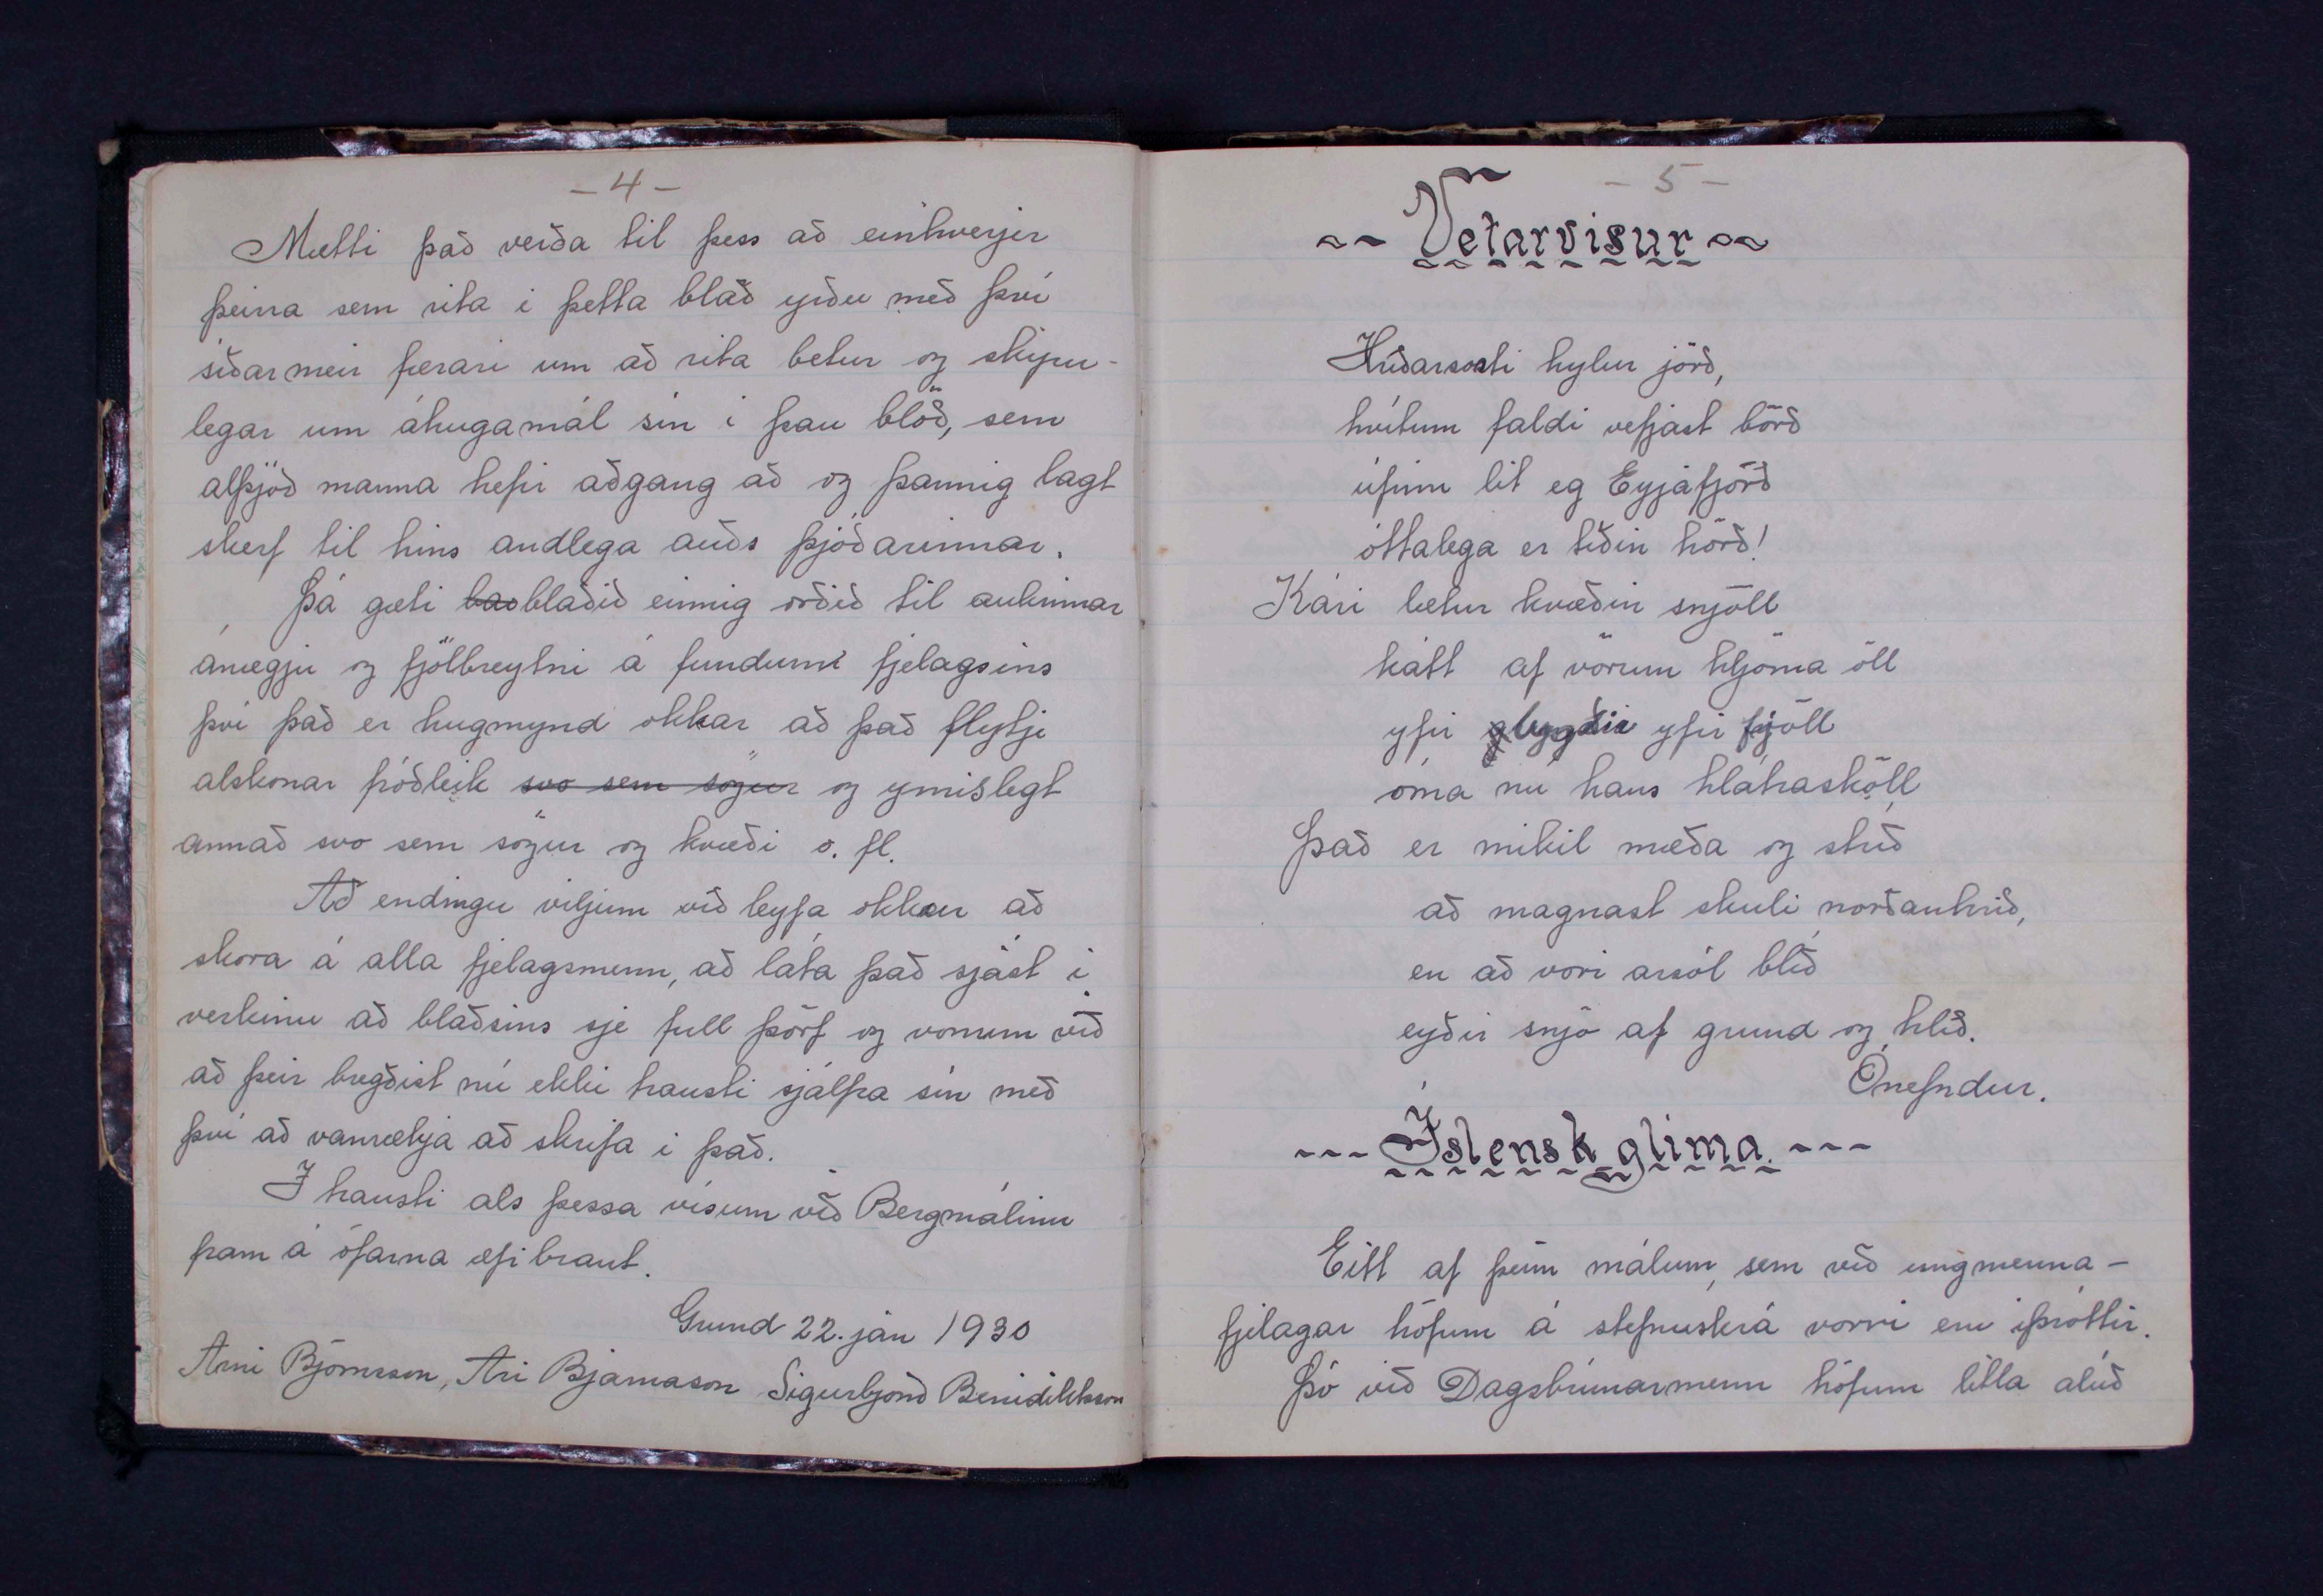 - 4 -
Mætti það verða til þess að einhverjir
þeirra sem rita i þetta blað yrðu með því
síðarmeir færari um að rita betur og skipu-
legar um áhugamál sín i þau blöð, sem
alþjóð manna hefir aðgang að og þannig lagt
skerf til hins andlega auðs þjóðarinnar.
Þá gæti blaðið einnig orðið til aukinnar
ánægju og fjölbreytni á fundum fjelagsins
því það er hugmynd okkar að það flytji
alskonar fróðleik svo sem sögur og ymislegt
annað svo sem sögur og kvæði o. fl.
Að endingu viljum við leyfa okkur að
skora á alla fjelagsmenn, að láta það sjást i
verkinu að blaðsins sje full þörf og vonum við
að þeir bregðist nú ekki trausti sjálfra sín með
því að vanrækja að skrifa i það.
I trausti als þessa vísum við Bergmálinu
fram á ófarna æfibraut.
Grund 22. jan 1930
Árni Björnsson, Ari Bjarnason Sigurbjörð Benidiktsson
- 5 -
~~ Vetarvísur ~~
Hríðarsorti hylur jörð,
hvítum faldi vefjast börð
úfinn lít eg Eyjafjörð
óttalega er tíðin hörð!
Kári lætur kvæðin snjöll
kátt af vörum hljóma öll
yfir bygðir yfir fjöll
óma nú hans hlátrasköll
Það er mikil mæða og stríð
að magnast skuli norðanhríð,
en að vori ársól blíð
eyðir snjó af grund og hlíð.
Ónefndur.
--- Íslensk glíma. ---
Eitt af þeim málum, sem við ungmenna-
fjelagar höfum á stefnuskrá vorri eru íþróttir.
Þó við Dagsbrúnarmenn höfum litla alúð